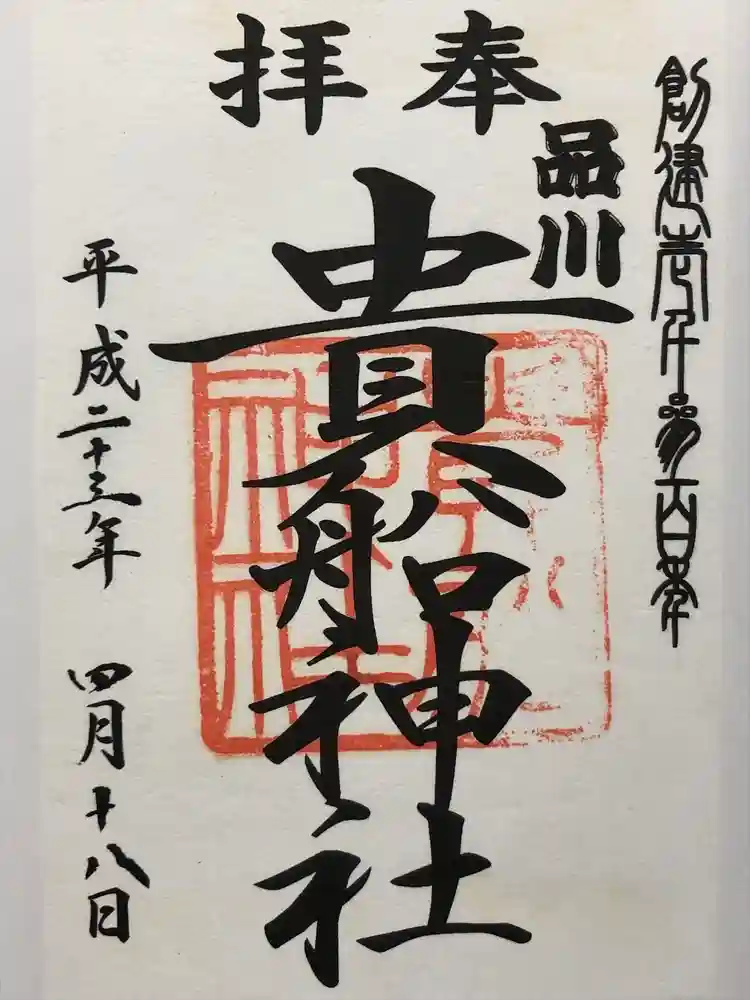 創建壱千三百年
奉拝
品川
貴船神社
平成二十三年 四月十八日